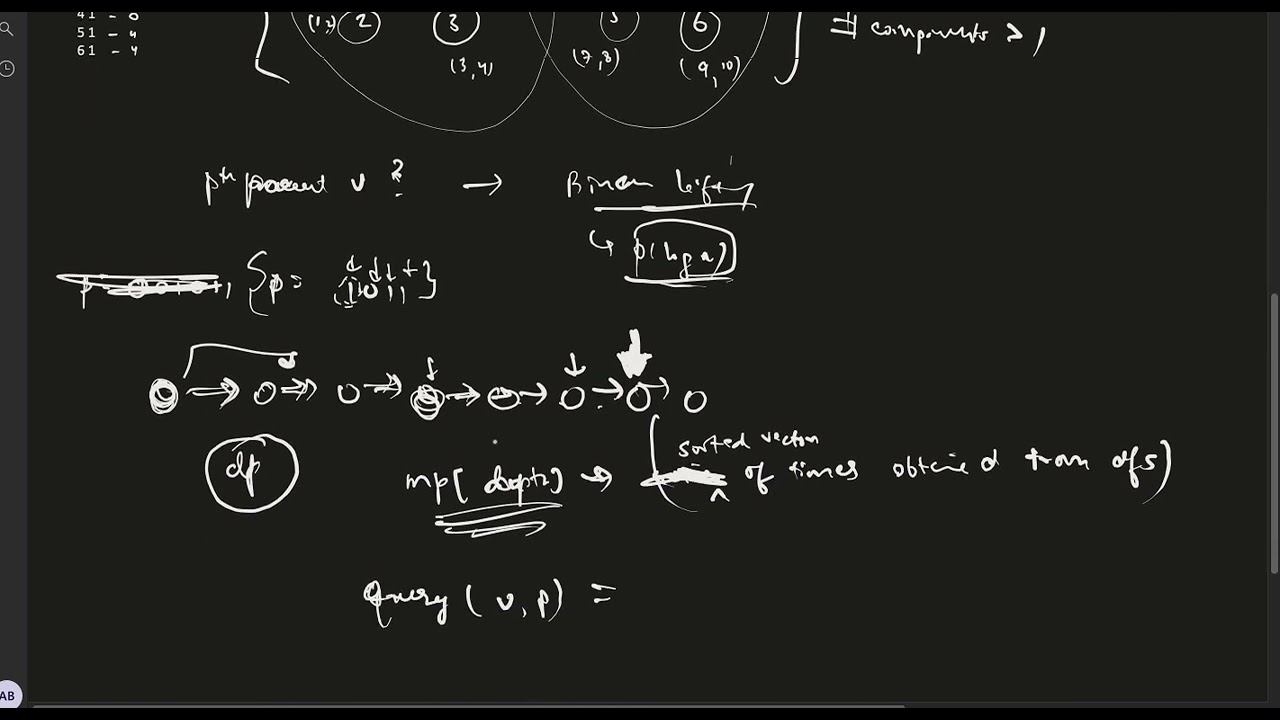 41 - 0
51 - 4
61 - 4
(1,2) 2 3 5 6
(3,4) (7,8) (9,10)
components > 1
pth parent v ? → Binary lifting
p = {1011}
dp
mp[depth] → (sorted vector
of times obtained from dfs)
query(v,p) =
AB